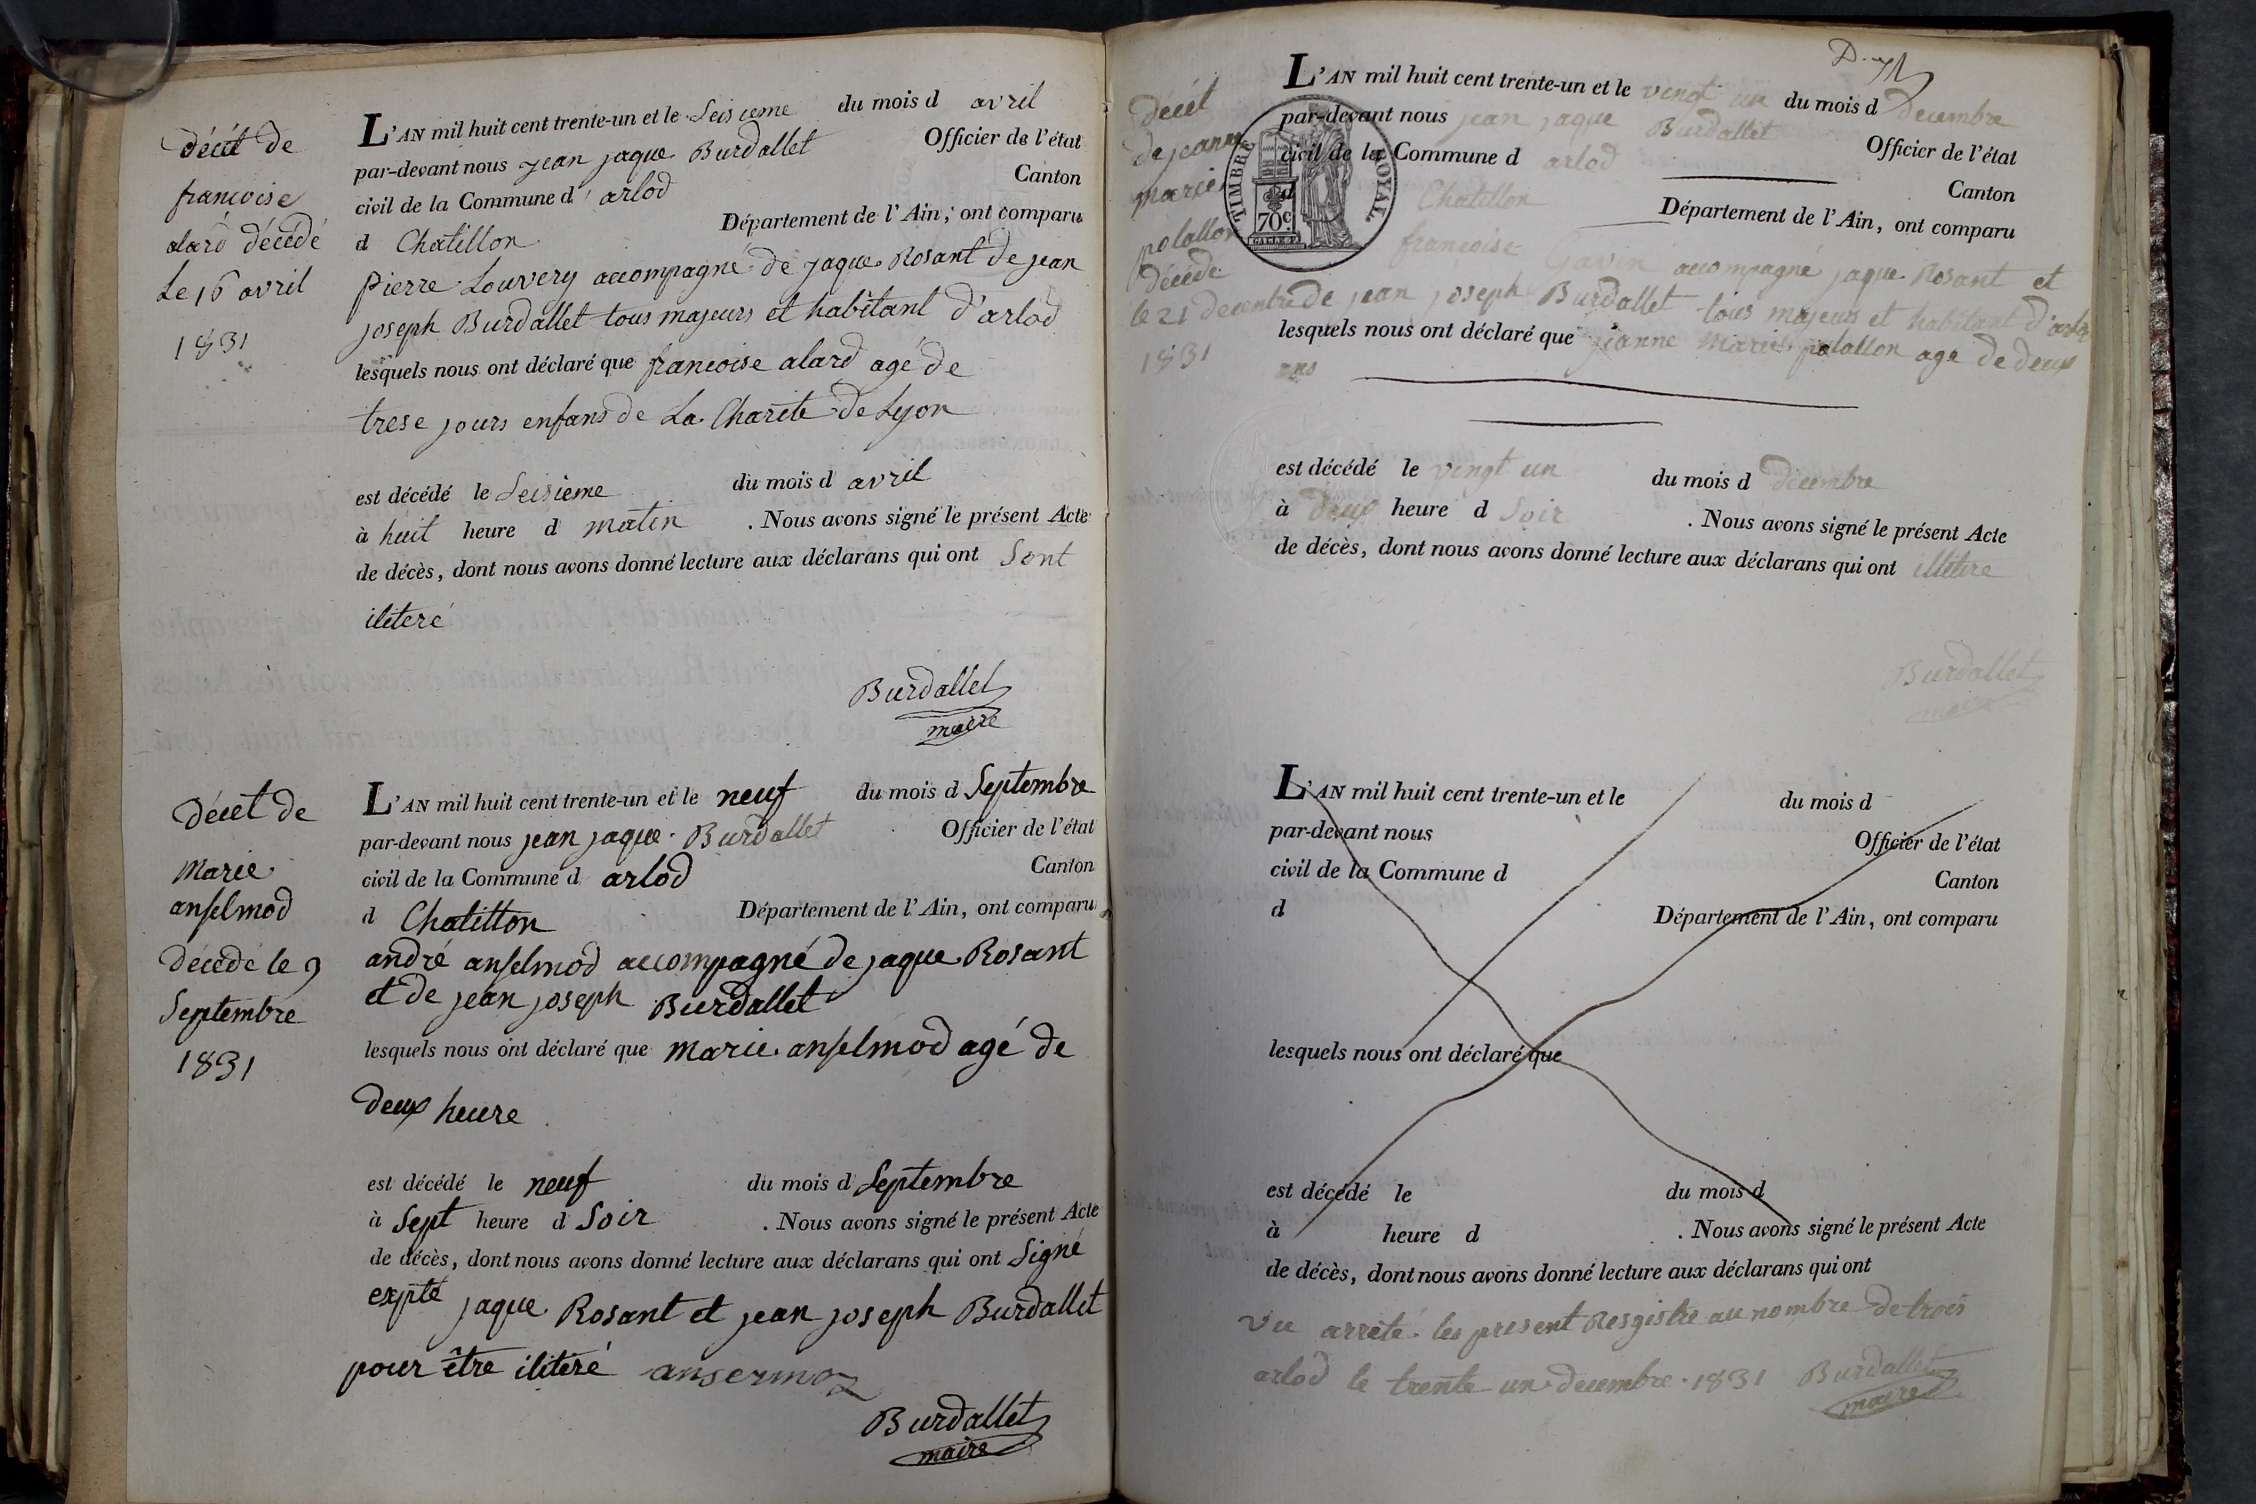 décét de
francoise
alard décédé
le 16 avril
1831
L'AN mil huit cent trente-un et le Seisieme du mois d avril
par-devant nous jean jaque Burdallet Officier de l'état
civil de la Commune d' arlod Canton
d Chatillon Département de l'Ain, ont comparu
pierre Louvery accompagné de jaque Rosant de jean
joseph Burdallet tous majeurs et habitant d'arlod
lesquels nous ont déclaré que francoise alard agé de
trese jours enfans de La Charité de Lyon
est décédé le Seisieme du mois d avril
à huit heure d matin . Nous avons signé le présent Acte
de décès, dont nous avons donné lecture aux déclarans qui ont Sont
ilitéré
Burdallet
maire
Décet de
Marie
anselmod
Décédé le 9
Septembre
1831
L'AN mil huit cent trente-un et le neuf du mois d Septembre
par-devant nous jean jaque Burdallet Officier de l'état
civil de la Commune d arlod Canton
d Chatillon Département de l'Ain, ont comparu
andré anselmod accompagné de jaque Rosant
et de jean joseph Burdallet
lesquels nous ont déclaré que Marie anselmod agé de
Deux heure
est décédé le neuf du mois d Septembre
à Sept heure d Soir . Nous avons signé le présent Acte
de décès, dont nous avons donné lecture aux déclarans qui ont Signé
expté jaque Rosant et jean joseph Burdallet
pour être ilitéré ansermoz
Burdallet
maire
décét
de jeanne
marie
polallon
Décédé
le 21 decembre
1831
TIMBRE ROYAL
70c.
L'AN mil huit cent trente-un et le vingt un du mois d Decembre
par-devant nous jean jaque Burdallet Officier de l'état
civil de la Commune d arlod Canton
d Chatillon Département de l'Ain, ont comparu
francoise accompagné jaque Rosant et
de jean joseph Burdallet tous majeurs et habitant d'arlod
lesquels nous ont déclaré que jianne Marie polallon age de deux
ans
est décédé le vingt un du mois d Décembre
à deux heure d Soir . Nous avons signé le présent Acte
de décès, dont nous avons donné lecture aux déclarans qui ont
Burdallet
maire
L'AN mil huit cent trente-un et le du mois d
par-devant nous Officier de l'état
civil de la Commune d Canton
d Département de l'Ain, ont comparu
lesquels nous ont déclaré que
est décédé le du mois d
à heure d . Nous avons signé le présent Acte
de décès, dont nous avons donné lecture aux déclarans qui ont
Vu arreté les present Resgistre au nombre de trois
arlod le trente un decembre 1831 Burdallet
maire